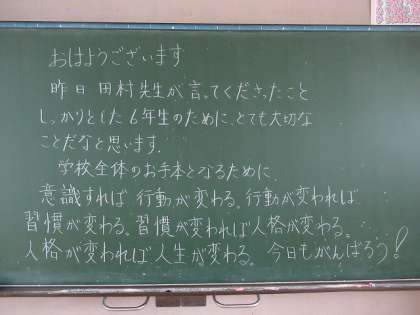 おはようございます
昨日 田村先生が言ってくださったこと
しっかりとした6年生のために、とても大切な
ことだなと思います。
学校全体のお手本となるために、
意識すれば 行動が変わる。行動が変われば
習慣が変わる。習慣が変われば人格が変わる。
人格が変われば人生が変わる。 今日もがんばろう!